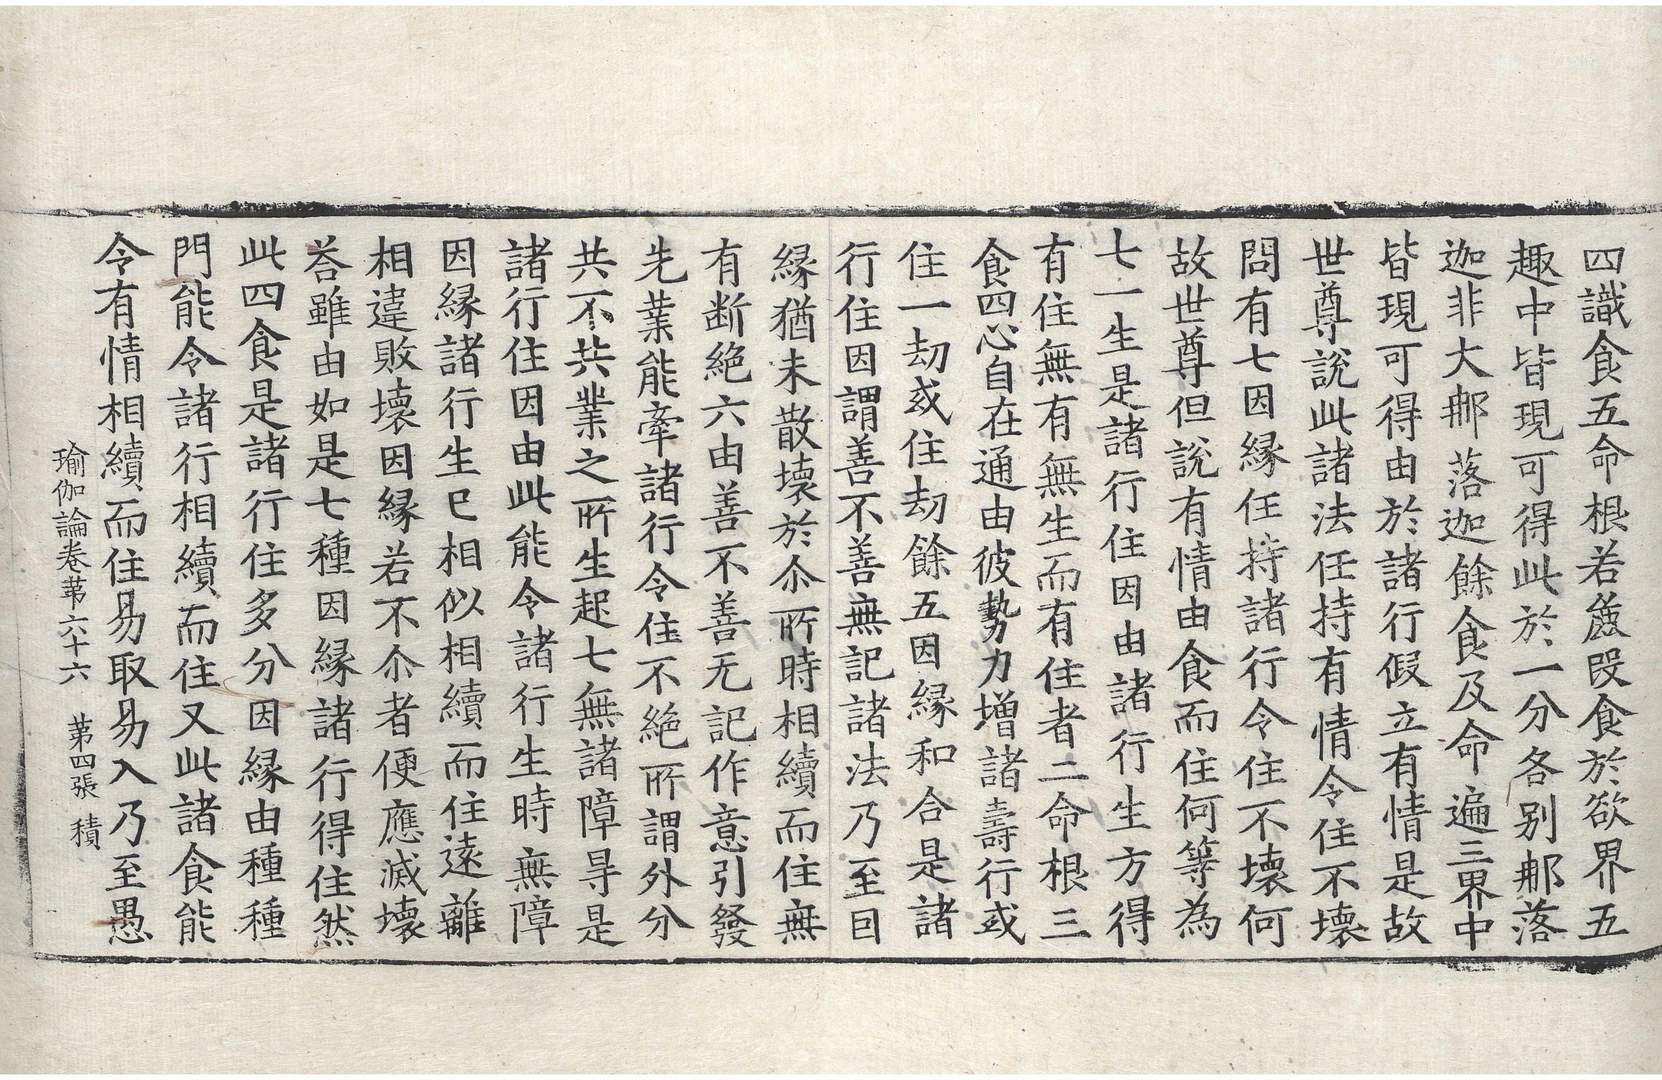 四識食五命根若麁段食於欲界五
趣中皆現可得此於一分各別那落
迦非大那落迦餘食及命遍三界中
皆現可得由於諸行假立有情是故
世尊說此諸法任持有情令住不壞
問有七因縁任持諸行令住不壞何
故世尊但說有情由食而住何等為
七一生是諸行住因由諸行生方得
有住無有無生而有住者二命根三
食四心自在通由彼勢力增諸壽行或
住一劫或住劫餘五因縁和合是諸
行住因謂善不善無記諸法乃至囙
縁猶未散壞於尒所時相續而住無
有断絶六由善不善无記作意引發
先業能牽諸行令住不絶所謂外分
共不共業之所生起七無諸障㝵是
諸行住因由此能令諸行生時無障
因縁諸行生已相似相續而住遠離
相違敗壞因縁若不尒者便應滅壞
荅雖由如是七種因縁諸行得住然
此四食是諸行住多分因縁由種種
門能令諸行相續而住又此諸食能
令有情相續而住易取易入乃至愚
瑜伽論卷苐六十六 第四張 積